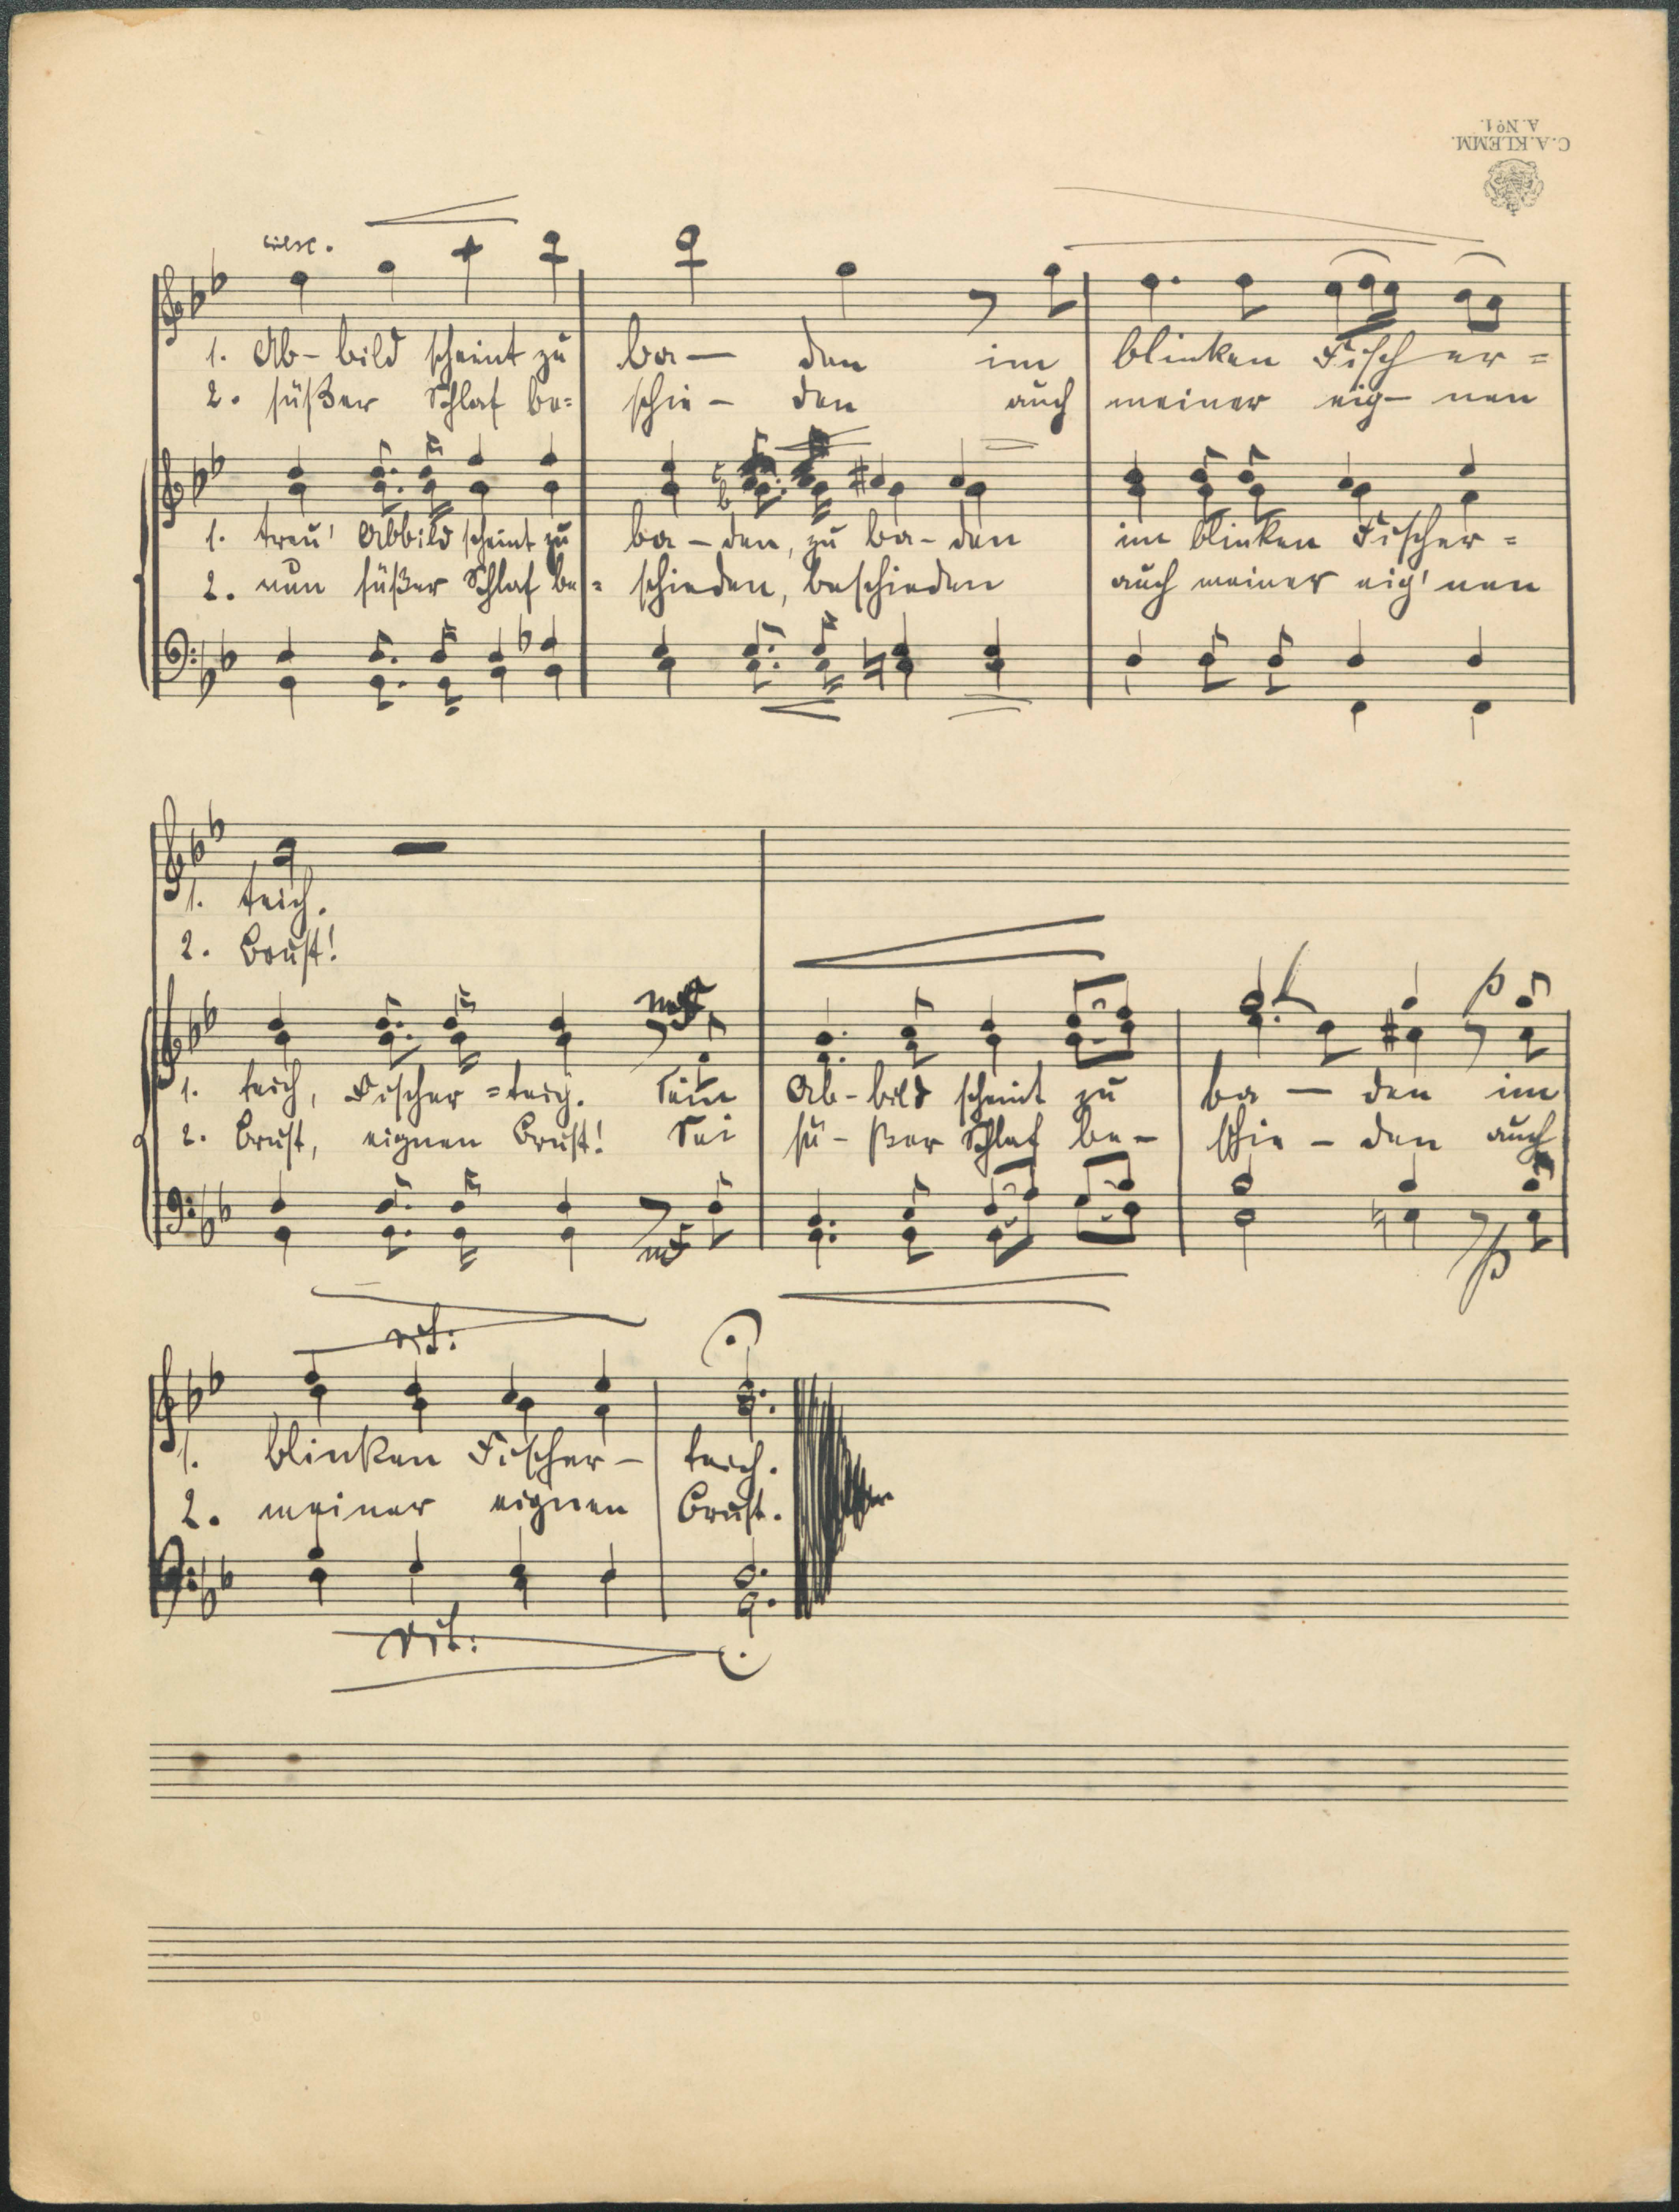 C. A. KLEMM.
A. No 1.
cresc.
1. Ab - bild scheint zu ba - den im blinken Fisch er =
2. süßer Schlaf be = schie - den auch meiner eig - nen
1. treu' Abbild scheint zu ba - den, zu ba - den im blinken Fischer =
2. nun süßer Schlaf be = schieden, beschieden auch meiner eig' nen
1. teich.
2. Brust!
mf
p
1. teich, Fischer = teich. Sein Ab - bild scheint zu ba - den im
2. Brust, eignen Brust! Sei sü - ßer Schlaf be - schie - den auch
mf
p
rit:
1. blinken Fischer - teich.
2. meiner eignen Brust.
rit: